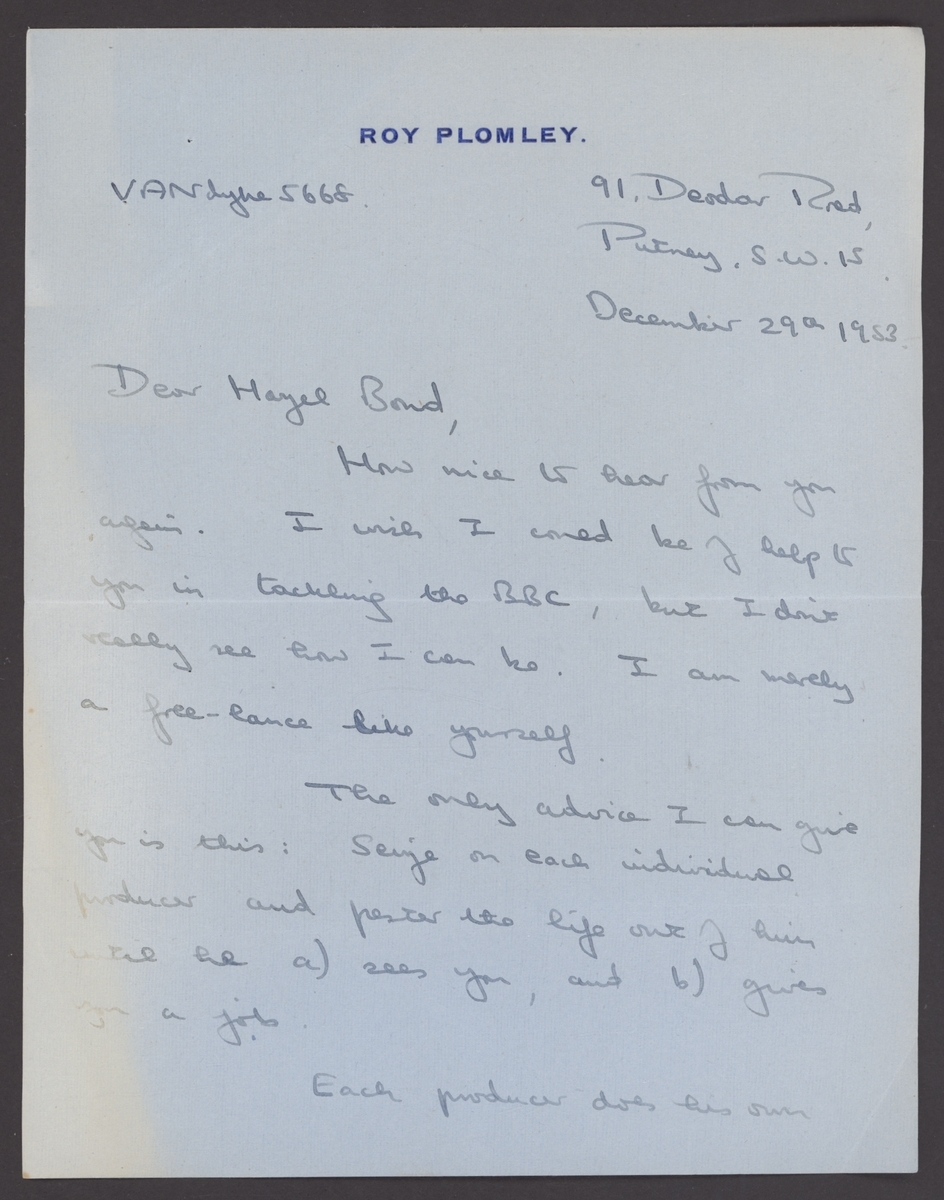 ROY PLOMLEY.
VANdyke 5668.
91, Deodar Road,
Putney, S.W. 15.
December 29th 1953.
Dear Hazel Bond,
How nice to hear from you
again. I wish I could be of help to
you in tackling the BBC, but I don't
really see how I can be. I am merely
a free-lance like yourself.
The only advice I can give
you is this: Seize on each individual
producer and pester the life out of him
until he a) sees you, and b) gives
you a job.
Each producer does his own